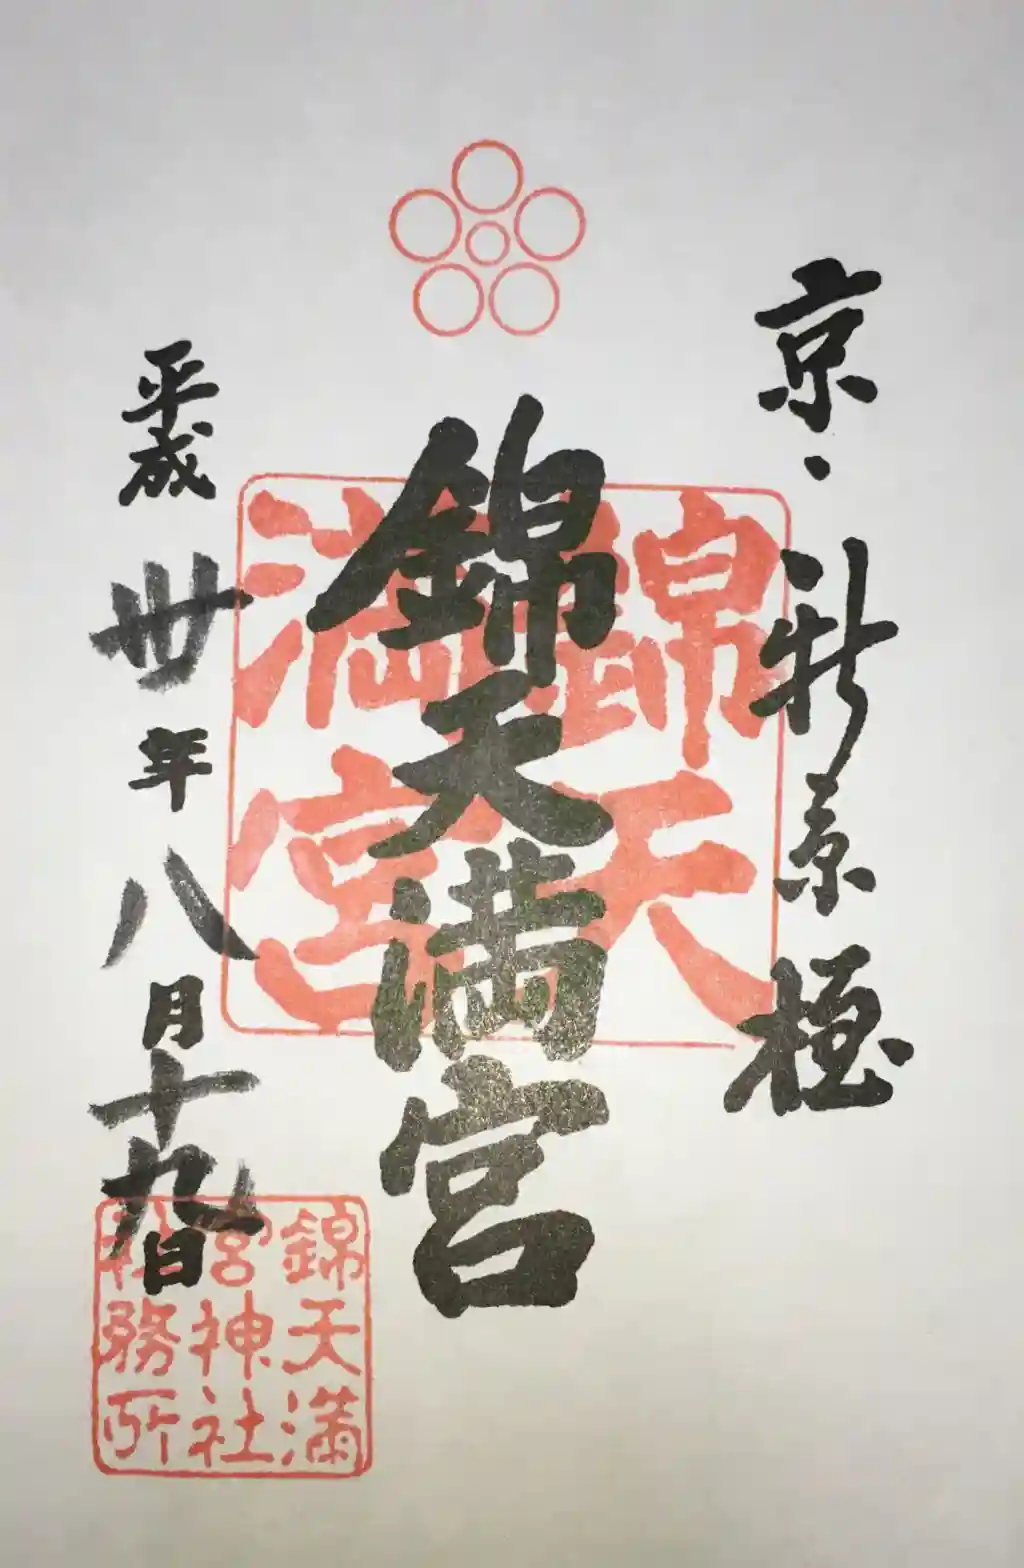 京・新京極
錦天満宮
平成卅年八月十九日
錦天
満宮
錦天満
宮神社
社務所